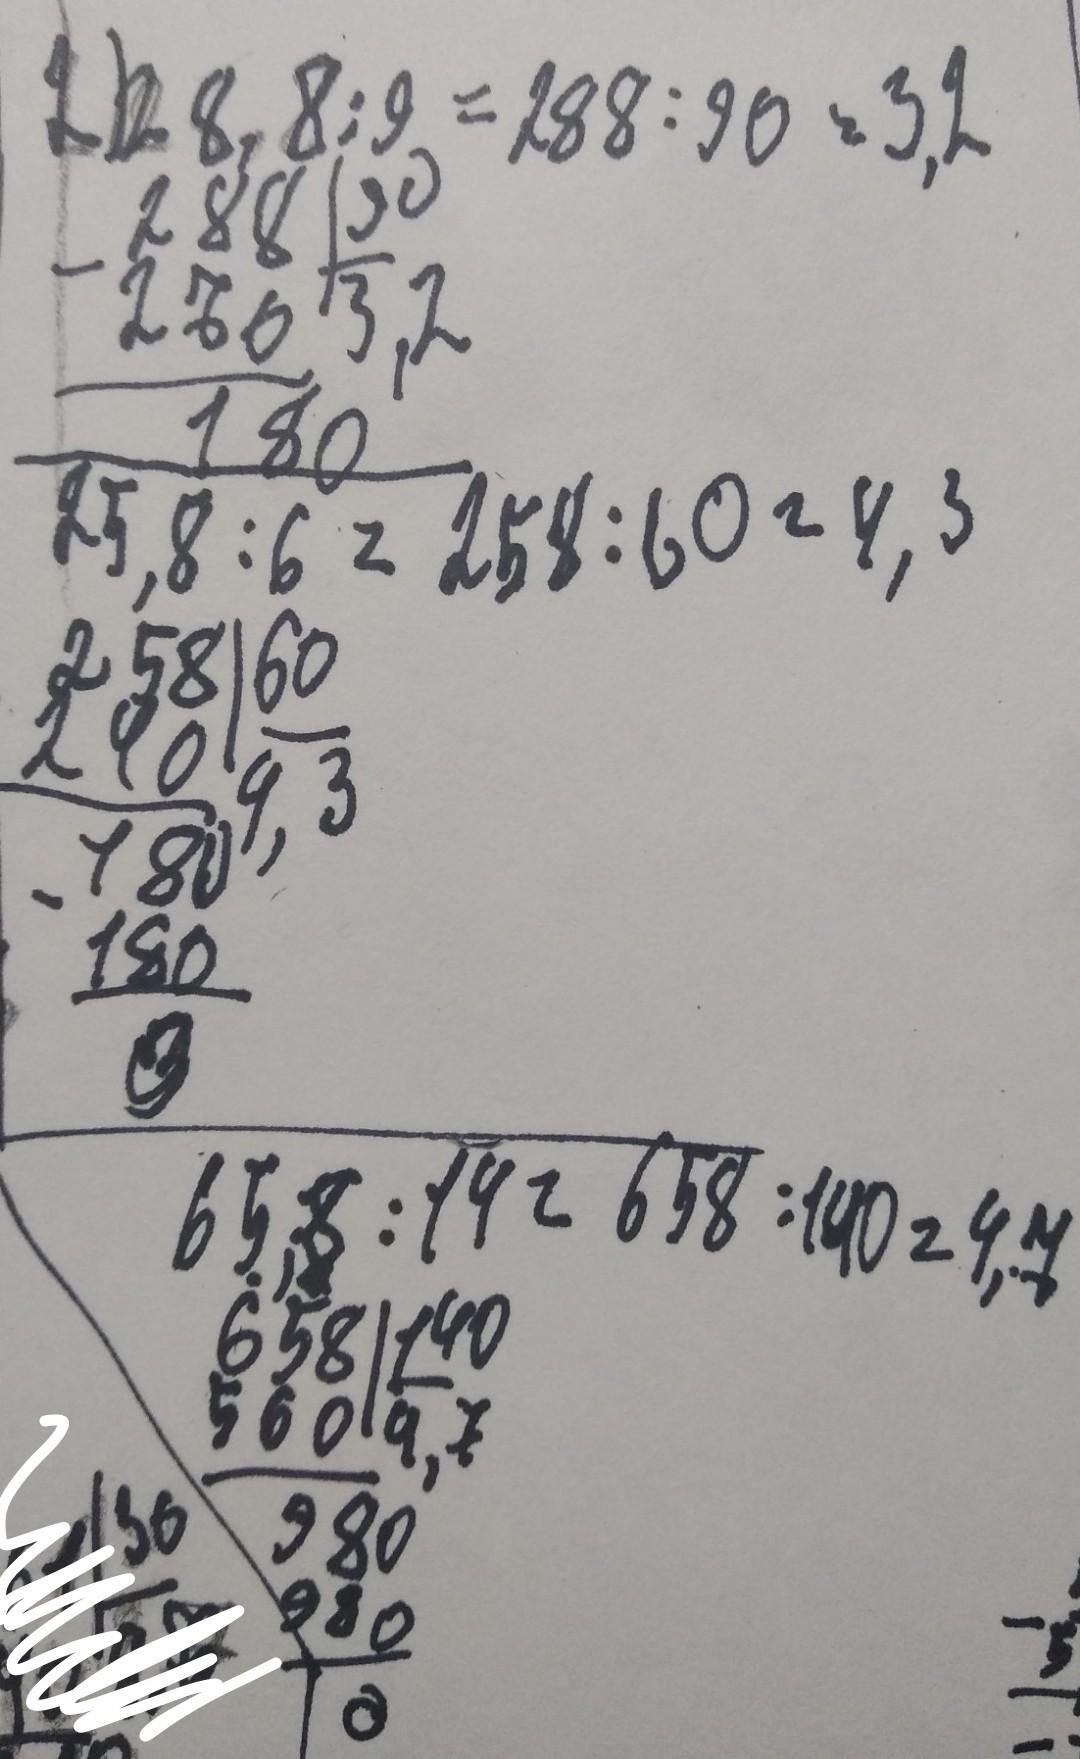 2) 28,8:9 = 288:90 = 3,2
288 | 90
- 270 3,2
180
25,8:6 = 258:60 = 4,3
258 | 60
240 4,3
- 180
180
0
65,8:14 = 658:140 = 4,7
658 | 140
560 4,7
980
980
0
30